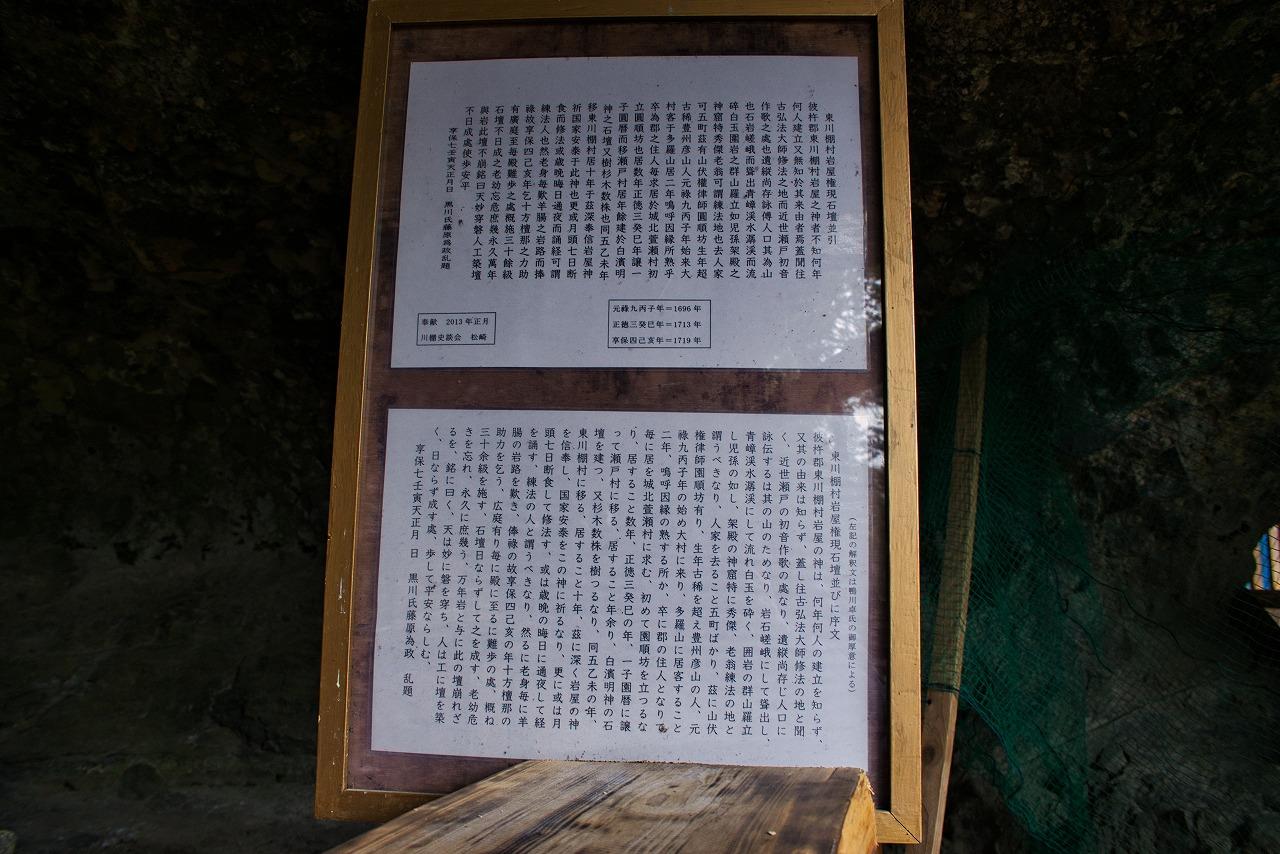 東川棚村岩屋権現石壇並引
彼杵郡東川棚村岩屋之神者不知何年
何人建立又無知於其来由者焉蓋聞往
古弘法大師修法之地而近世瀬戸初音
作歌之處也遺縦尚存詠傳人口其為山
也石岩嵯峨而聳出青嶂渓水潺渓而流
碎白玉圍岩之群山羅立如児孫架殿之
神窟特秀傑老翁可謂練法地也去人家
可五町茲有山伏權律師圓順坊生年超
古稀豊州彦山人元祿九丙子年始来大
村客于多羅山居二年鳴呼因縁所熟乎
卒為郡之住人毎求居於城北萱瀬村初
立圓順坊也居数年正德三癸巳年譲一
子圓暦而移瀬戸村居年餘建於白濱明
神之石壇又樹杉木数株也同五乙未年
移東川棚村居十年于茲深奉信岩屋神
祈国家安泰于此神也更或月頭七日断
食而修法或歳晩晦日通夜而誦経可謂
練法人也然老身毎歎羊腸之岩路而捧
祿故享保四己亥年乞十方檀那之力助
有廣庭至毎殿難歩之處概施三十餘級
石壇不日成之老幼忘危庶幾永久萬年
與岩此壇不崩銘曰天妙穿磐人工築壇
不日成處徒歩安平
享保七壬寅天正月日　黒川氏藤原為政乱題
元祿九丙子年＝1696年
正徳三癸巳年＝1713年
享保四己亥年＝1719年
奉献　2013年正月
川棚史談会　松崎
（左記の解釈文は鴨川卓氏の御厚意による）
東川棚村岩屋権現石壇並びに序文
彼杵郡東川棚村岩屋の神は、何年何人の建立を知らず、
又其の由来は知らず、蓋し往古弘法大師修法の地と聞
く、近世瀬戸の初音作歌の處なり、遺縦尚存じ人口に
詠伝するは其の山のためなり、岩石嵯峨にして聳出し、
青嶂渓水潺渓にして流れ白玉を砕く、囲岩の群山羅立
し児孫の如し、架殿の神窟特に秀傑、老翁練法の地と
謂うべきなり、人家を去ること五町ばかり、茲に山伏
権律師園順坊有り、生年古稀を超え豊州彦山の人、元
祿九丙子年の始め大村に来り、多羅山に居客すること
二年、鳴呼因縁の熟する所か、卒に郡の住人となりて
毎に居を城北萱瀬村に求む、初めて園順坊を立つるな
り、居すること数年、正徳三癸巳の年、一子園暦に譲
って瀬戸村に移る、居すること年余り、白濱明神の石
壇を建つ、又杉木数株を樹つるなり、同五乙未の年、
東川棚村に移る、居すること十年、茲に深く岩屋の神
を信奉し、国家安泰をこの神に祈るなり、更に或は月
頭七日断食して修法す、或は歳晩の晦日に通夜して経
を誦す、練法の人と謂うべきなり、然るに老身毎に羊
腸の岩路を歎き、俸祿の故享保四己亥の年十方檀那の
助力を乞う、広庭有り毎に殿に至るに難歩の處、概ね
三十余級を施す、石壇日ならずして之を成す、老幼危
きを忘れ、永久に庶幾う、万年岩と与に此の壇崩れざ
るを、銘に曰く、天は妙に磐を穿ち、人は工に壇を築
く、日ならず成す處、歩して平安ならしむ、
享保七壬寅天正月　日　黒川氏藤原為政　乱題